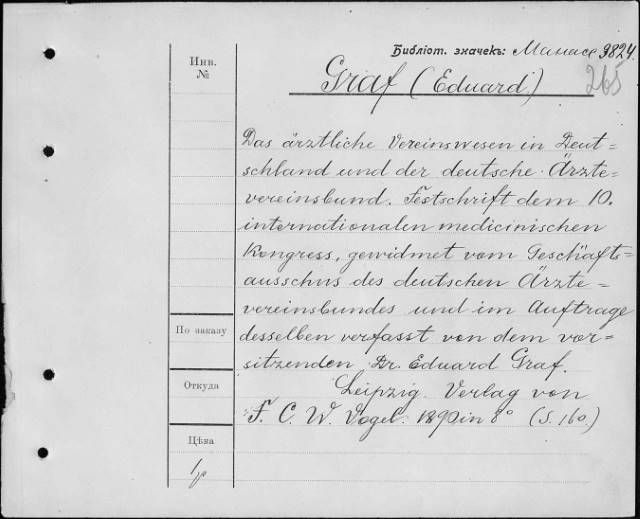 Библіот. значекъ: Манасе 3824.
265
Инв.
№
Graf (Eduard.)
Das ärztliche Vereinswesen in Deut=
schland und der deutsche Ärzte-
vereinsbund. Festschrift dem 10.
internationalen medicinischen
Kongress, gewidmet vom Geschäfts-
ausschus des deutschen Ärzte=
vereinsbundes und im Auftrage
desselben verfasst von dem vor=
sitzenden Dr. Eduard Graf.
Leipzig. Verlag von
F. C. W. Vogel. 1890 in 8° (S. 160.)
По заказу
Откуда
Цѣна
1р